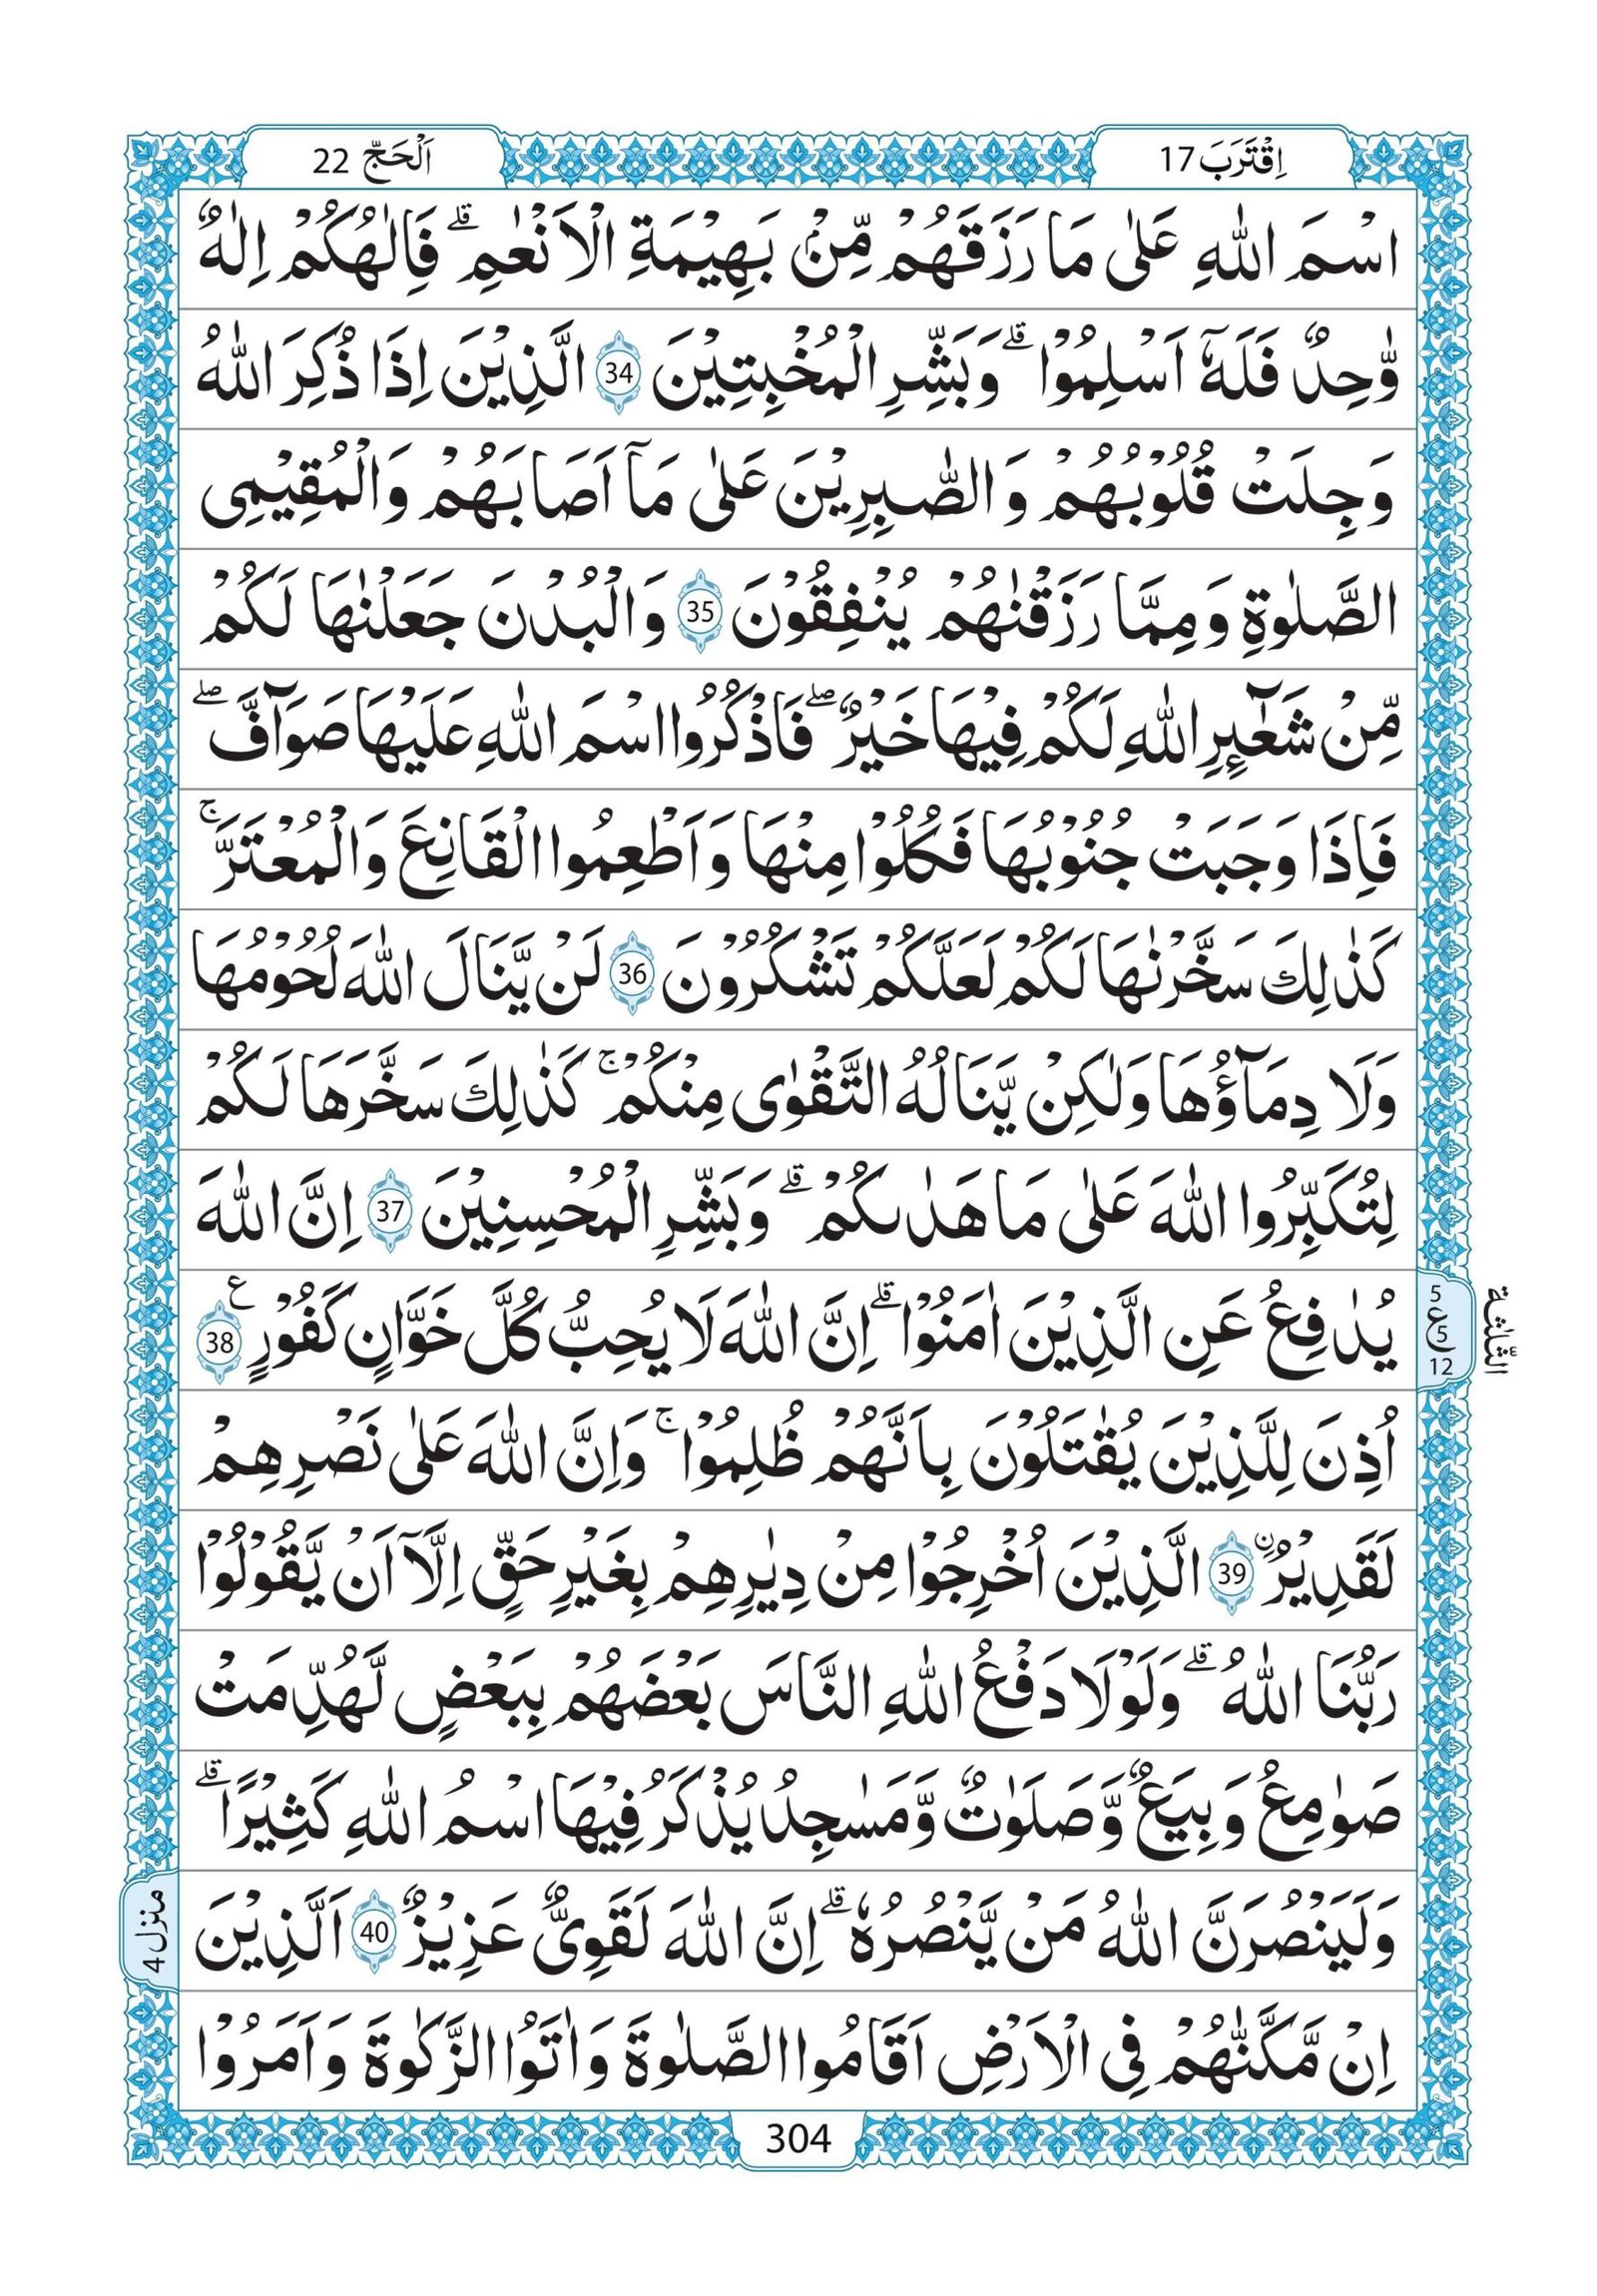 اِقْتَرَبَ 17
اَلْحَجّ 22
اسْمَ اللّٰهِ عَلٰى مَا رَزَقَهُمْ مِّنْۢ بَهِيْمَةِ الْاَنْعٰمِ ۗ فَاِلٰهُكُمْ اِلٰهٌ
وَّٰحِدٌ فَلَهٗٓ اَسْلِمُوْا ۗ وَبَشِّرِ الْمُخْبِتِيْنَ 34 الَّذِيْنَ اِذَا ذُكِرَ اللّٰهُ
وَجِلَتْ قُلُوْبُهُمْ وَالصّٰبِرِيْنَ عَلٰى مَآ اَصَابَهُمْ وَالْمُقِيْمِى
الصَّلٰوةِ وَمِمَّا رَزَقْنٰهُمْ يُنْفِقُوْنَ 35 وَالْبُدْنَ جَعَلْنٰهَا لَكُمْ
مِّنْ شَعٰٓئِرِ اللّٰهِ لَكُمْ فِيْهَا خَيْرٌ ۖ فَاذْكُرُوا اسْمَ اللّٰهِ عَلَيْهَا صَوَآفَّ ۖ
فَاِذَا وَجَبَتْ جُنُوْبُهَا فَكُلُوْا مِنْهَا وَاَطْعِمُوا الْقَانِعَ وَالْمُعْتَرَّ ۚ
كَذٰلِكَ سَخَّرْنٰهَا لَكُمْ لَعَلَّكُمْ تَشْكُرُوْنَ 36 لَنْ يَّنَالَ اللّٰهَ لُحُوْمُهَا
وَلَا دِمَآؤُهَا وَلٰكِنْ يَّنَالُهُ التَّقْوٰى مِنْكُمْ ۚ كَذٰلِكَ سَخَّرَهَا لَكُمْ
لِتُكَبِّرُوا اللّٰهَ عَلٰى مَا هَدٰىكُمْ ۗ وَبَشِّرِ الْمُحْسِنِيْنَ 37 اِنَّ اللّٰهَ
يُدٰفِعُ عَنِ الَّذِيْنَ اٰمَنُوْا ۗ اِنَّ اللّٰهَ لَا يُحِبُّ كُلَّ خَوَّانٍ كَفُوْرٍ ع 38
5 ع 5 12
الثلثة
اُذِنَ لِلَّذِيْنَ يُقٰتَلُوْنَ بِاَنَّهُمْ ظُلِمُوْا ۚ وَاِنَّ اللّٰهَ عَلٰى نَصْرِهِمْ
لَقَدِيْرٌ ۙ 39 الَّذِيْنَ اُخْرِجُوْا مِنْ دِيٰرِهِمْ بِغَيْرِ حَقٍّ اِلَّآ اَنْ يَّقُوْلُوْا
رَبُّنَا اللّٰهُ ۗ وَلَوْلَا دَفْعُ اللّٰهِ النَّاسَ بَعْضَهُمْ بِبَعْضٍ لَّهُدِّمَتْ
صَوٰمِعُ وَبِيَعٌ وَّصَلَوٰتٌ وَّمَسٰجِدُ يُذْكَرُ فِيْهَا اسْمُ اللّٰهِ كَثِيْرًا ۗ
وَلَيَنْصُرَنَّ اللّٰهُ مَنْ يَّنْصُرُهٗ ۗ اِنَّ اللّٰهَ لَقَوِىٌّ عَزِيْزٌ 40 اَلَّذِيْنَ
منزل 4
اِنْ مَّكَّنّٰهُمْ فِى الْاَرْضِ اَقَامُوا الصَّلٰوةَ وَاٰتَوُا الزَّكٰوةَ وَاَمَرُوْا
304